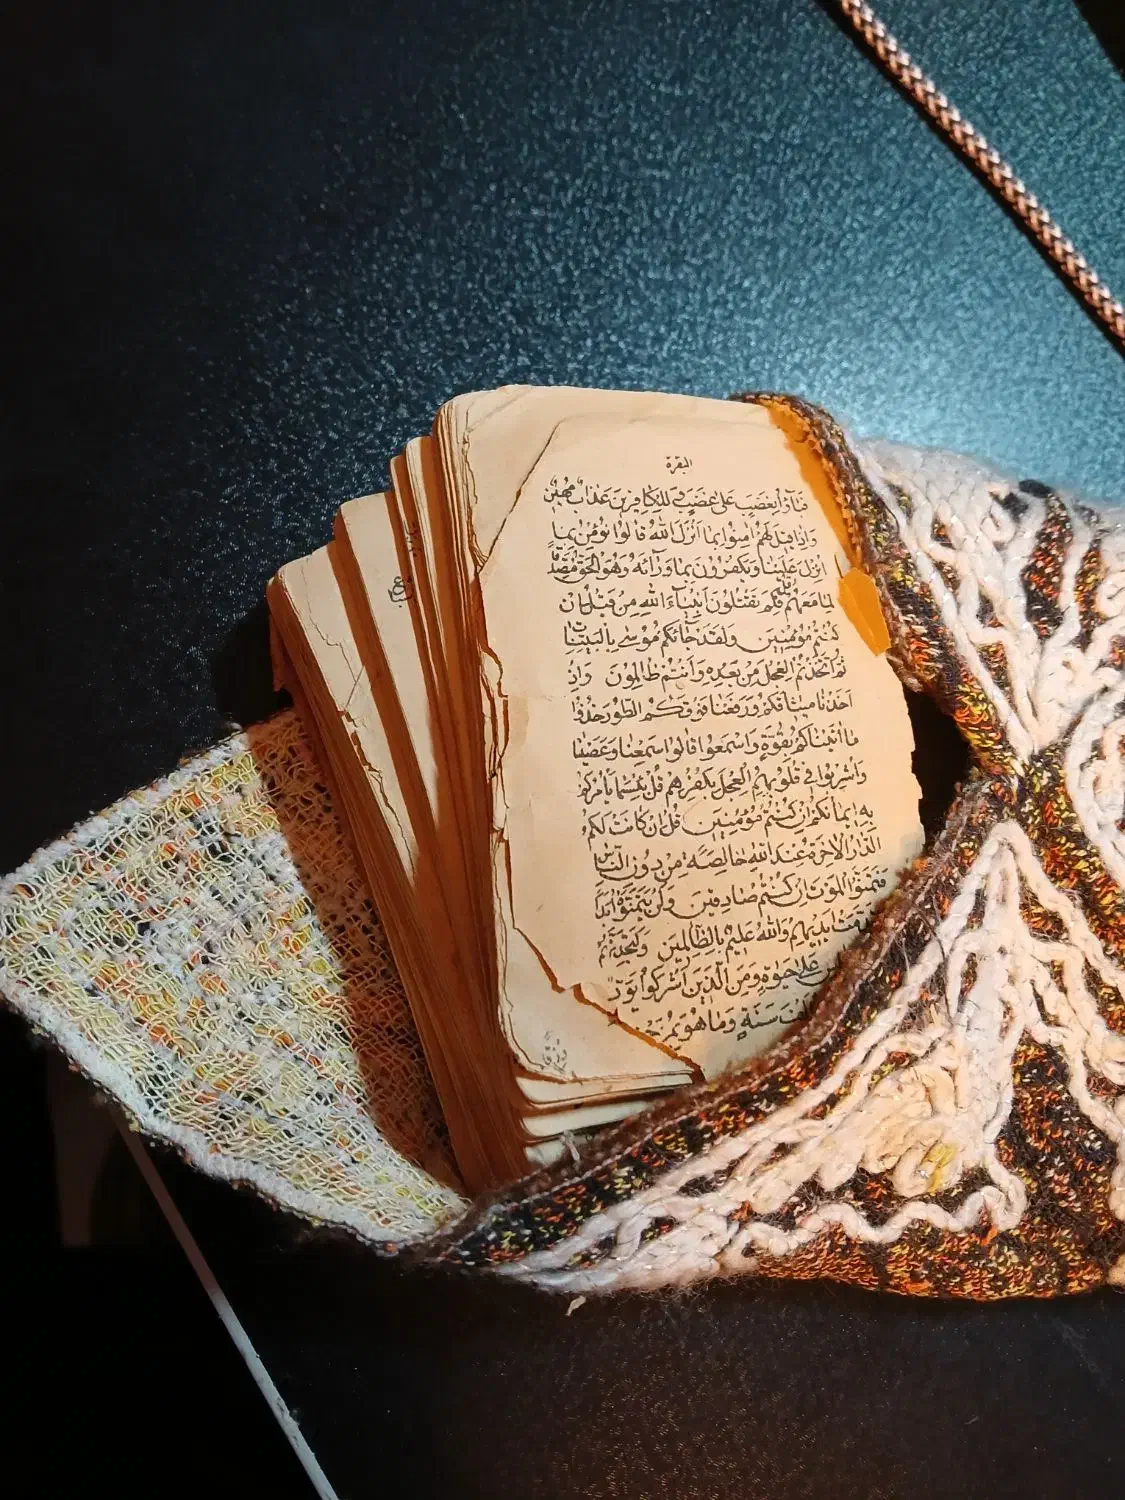 البقرة
فَبَآؤُا بِغَضَبٍ عَلَىٰ غَضَبٍ وَلِلْكَافِرِينَ عَذَابٌ مُهِينٌ
وَإِذَا قِيلَ لَهُمْ آمِنُوا بِمَا أَنْزَلَ اللهُ قَالُوا نُؤْمِنُ بِمَا
أُنْزِلَ عَلَيْنَا وَيَكْفُرُونَ بِمَا وَرَآءَهُ وَهُوَ الْحَقُّ مُصَدِّقًا
لِمَا مَعَهُمْ قُلْ فَلِمَ تَقْتُلُونَ أَنْبِيَآءَ اللهِ مِنْ قَبْلُ إِنْ
كُنْتُمْ مُؤْمِنِينَ وَلَقَدْ جَائَكُمْ مُوسَىٰ بِالْبَيِّنَاتِ
ثُمَّ اتَّخَذْتُمُ الْعِجْلَ مِنْ بَعْدِهِ وَأَنْتُمْ ظَالِمُونَ وَإِذْ
أَخَذْنَا مِيثَاقَكُمْ وَرَفَعْنَا فَوْقَكُمُ الطُّورَ خُذُوا
مَا آتَيْنَاكُمْ بِقُوَّةٍ وَاسْمَعُوا قَالُوا سَمِعْنَا وَعَصَيْنَا
وَأُشْرِبُوا فِي قُلُوبِهِمُ الْعِجْلَ بِكُفْرِهِمْ قُلْ بِئْسَمَا يَأْمُرُكُمْ
بِهِ إِيمَانُكُمْ إِنْ كُنْتُمْ مُؤْمِنِينَ قُلْ إِنْ كَانَتْ لَكُمُ
الدَّارُ الْآخِرَةُ عِنْدَ اللهِ خَالِصَةً مِنْ دُونِ النَّاسِ
فَتَمَنَّوُا الْمَوْتَ إِنْ كُنْتُمْ صَادِقِينَ وَلَنْ يَتَمَنَّوْهُ أَبَدًا
قَدَّمَتْ أَيْدِيهِمْ وَاللهُ عَلِيمٌ بِالظَّالِمِينَ وَلَتَجِدَنَّهُمْ
عَلَىٰ حَيَوٰةٍ وَمِنَ الَّذِينَ أَشْرَكُوا يَوَدُّ
سَنَةٍ وَمَا هُوَ